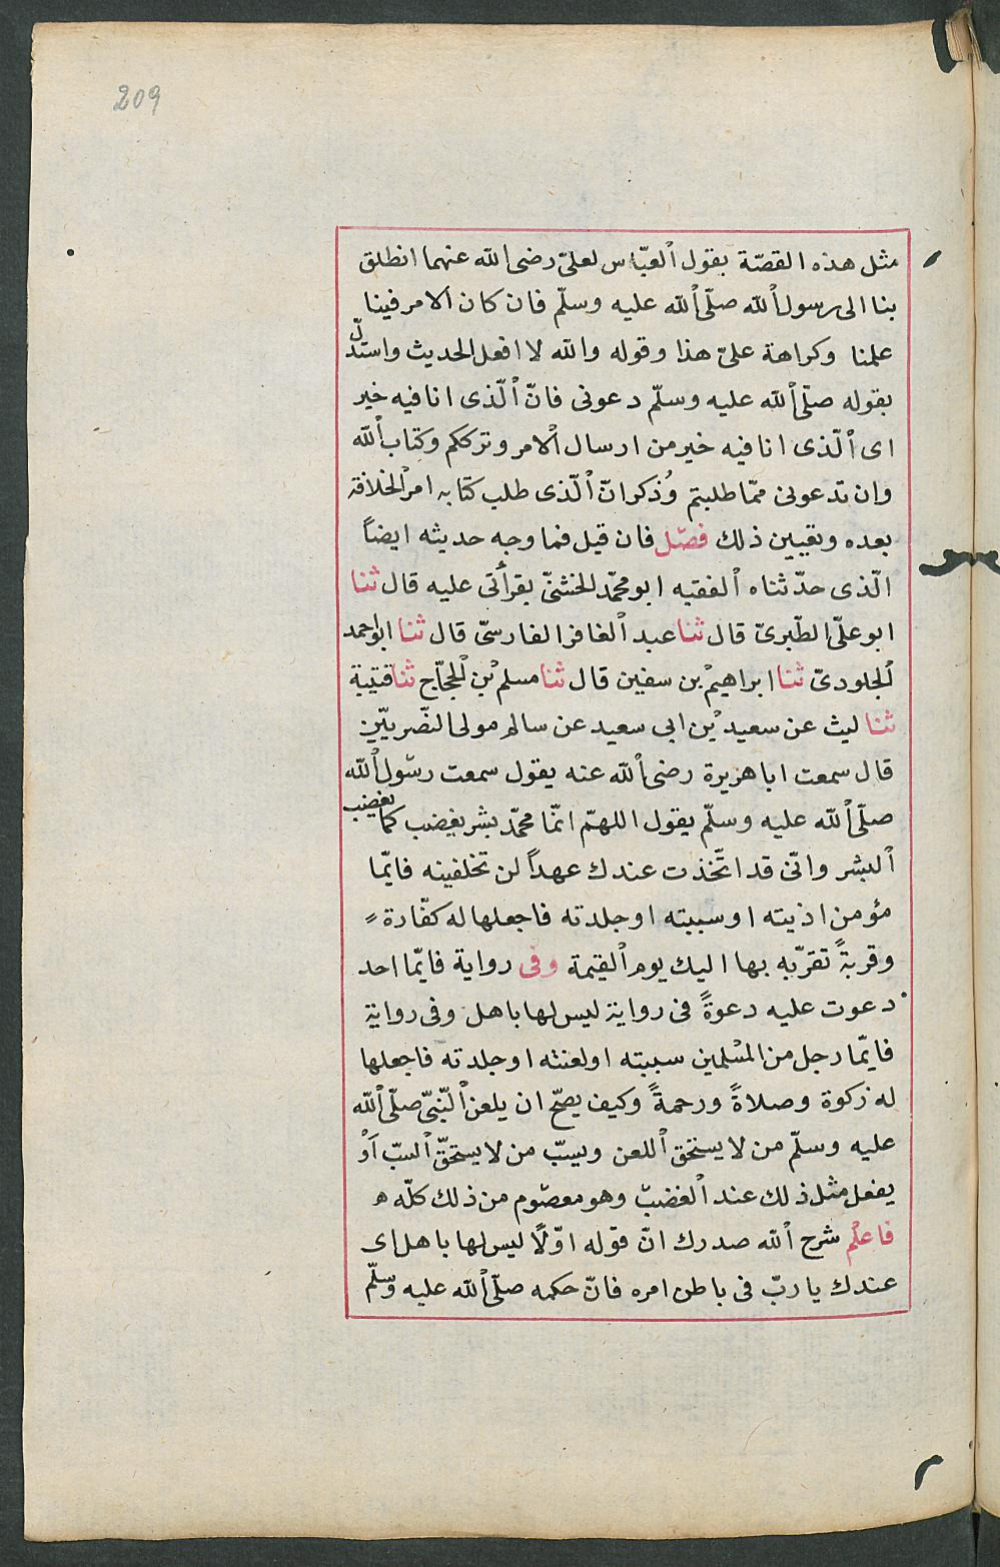 209
مثل هذه القصّة بقول العبّاس لعلىّ رضى الله عنهما انطلق
بنا الى رسول الله صلّى الله عليه وسلّم فان كان الامر فينا
علمنا وكراهة علىّ هذا وقوله والله لا افعل الحديث واستدلّ
بقوله صلّى الله عليه وسلّم دعونى فانّ الّذى انا فيه خير
اى الّذى انا فيه خير من ارسال الامر وترككم وكتاب الله
وان تدعونى ممّا طلبتم وُذكر انّ الّذى طلب كتابه امر الخلافة
بعده وتعيين ذلك فصل فان قيل فما وجه حديثه ايضاً
الّذى حدّثناه الفقيه ابو محمّد الخشنىّ بقرأتى عليه قال ثنا
ابو علىّ الطّبرىّ قال ثنا عبد الغافر الفارسىّ قال ثنا ابو احمد
الجلودىّ ثنا ابراهيم بن سفين قال ثنا مسلم بن الحجّاج ثنا قتيبة
ثنا ليث عن سعيد بن ابى سعيد عن سالم مولى النّصريّين
قال سمعت ابا هريرة رضى الله عنه يقول سمعت رسول الله
صلّى الله عليه وسلّم يقول اللهمّ انّما محمّد بشر يغضب كما يغضب
البشر وانّى قد اتّخذت عندك عهداً لن تخلفينه فايّما
مؤمن اذيته او سببته او جلدته فاجعلها له كفّارة
وقربةً تقرّبه بها اليك يوم القيمة وفى رواية فايّما احد
دعوت عليه دعوةً فى رواية ليس لها باهل وفى رواية
فايّما رجل من المسلمين سببته او لعنته او جلدته فاجعلها
له زكوة وصلاةً ورحمةً وكيف يصحّ ان يلعن النّبىّ صلّى الله
عليه وسلّم من لا يستحق اللعن ويسبّ من لا يستحقّ السبّ اَوْ
يفعل مثل ذلك عند الغضب وهو معصوم من ذلك كلّه ه
فاعلم شرح الله صدرك انّ قوله اوّلاً ليس لها باهل اى
عندك يا ربّ فى باطن امره فانّ حكمه صلّى الله عليه وسلّم